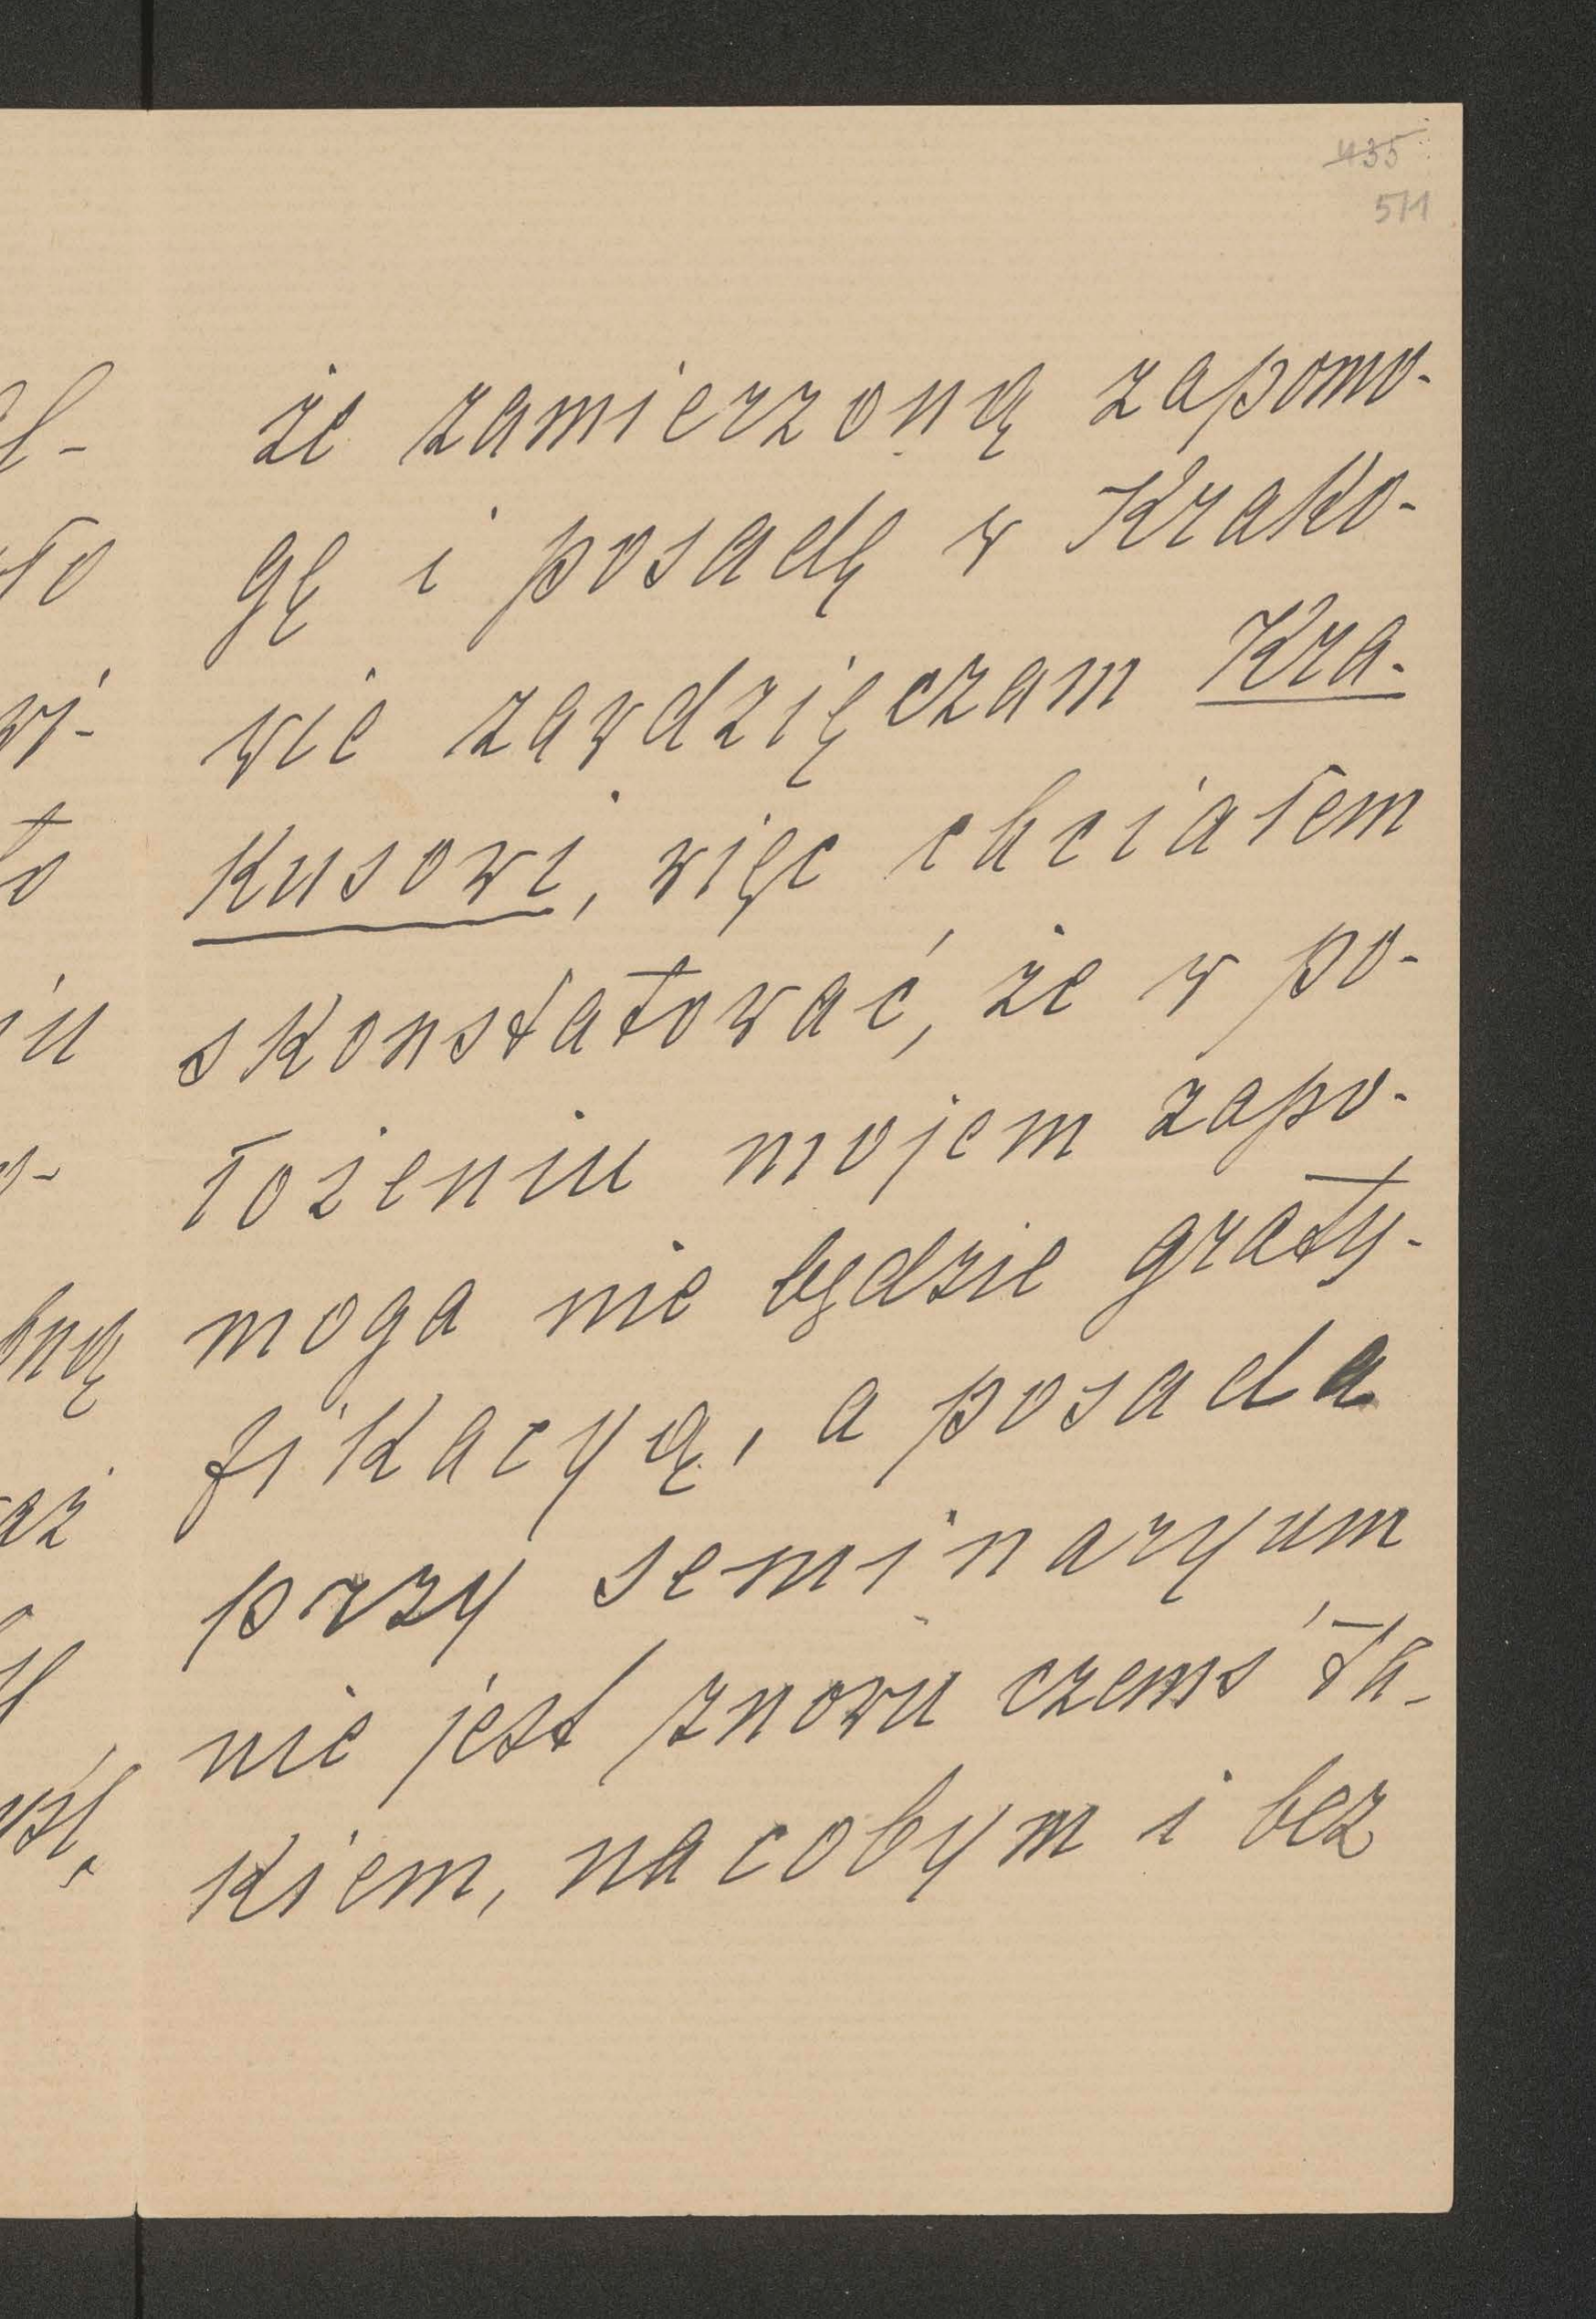 435
511
że zamierzoną zapomo-
gę i posadę w Krako-
wie zawdzięczam Kra-
kusowi, więc chciałem
skonstatować, że w po-
łożeniu mojem zapo-
moga nie będzie graty-
fikacyą, a posada
przy seminaryum
nie jest znowu czemś ta-
kiem, na cobym i bez